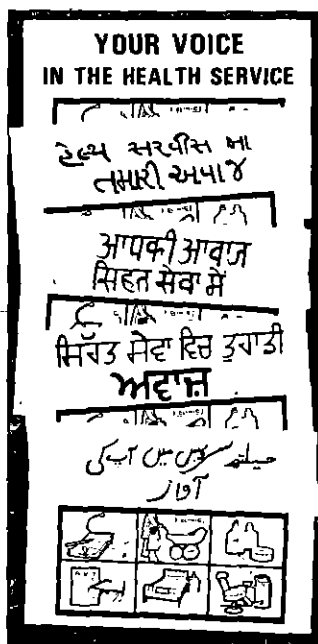 YOUR VOICE
IN THE HEALTH SERVICE
હેલ્થ સરવીસ મા
તમારી અવાજ
आपकी आवाज
सिहत सेवा में
ਸਿਹਤ ਸੇਵਾ ਵਿਚ ਤੁਹਾਡੀ
ਅਵਾਜ਼
ہیلتھ سروس میں آپ کی
آواز